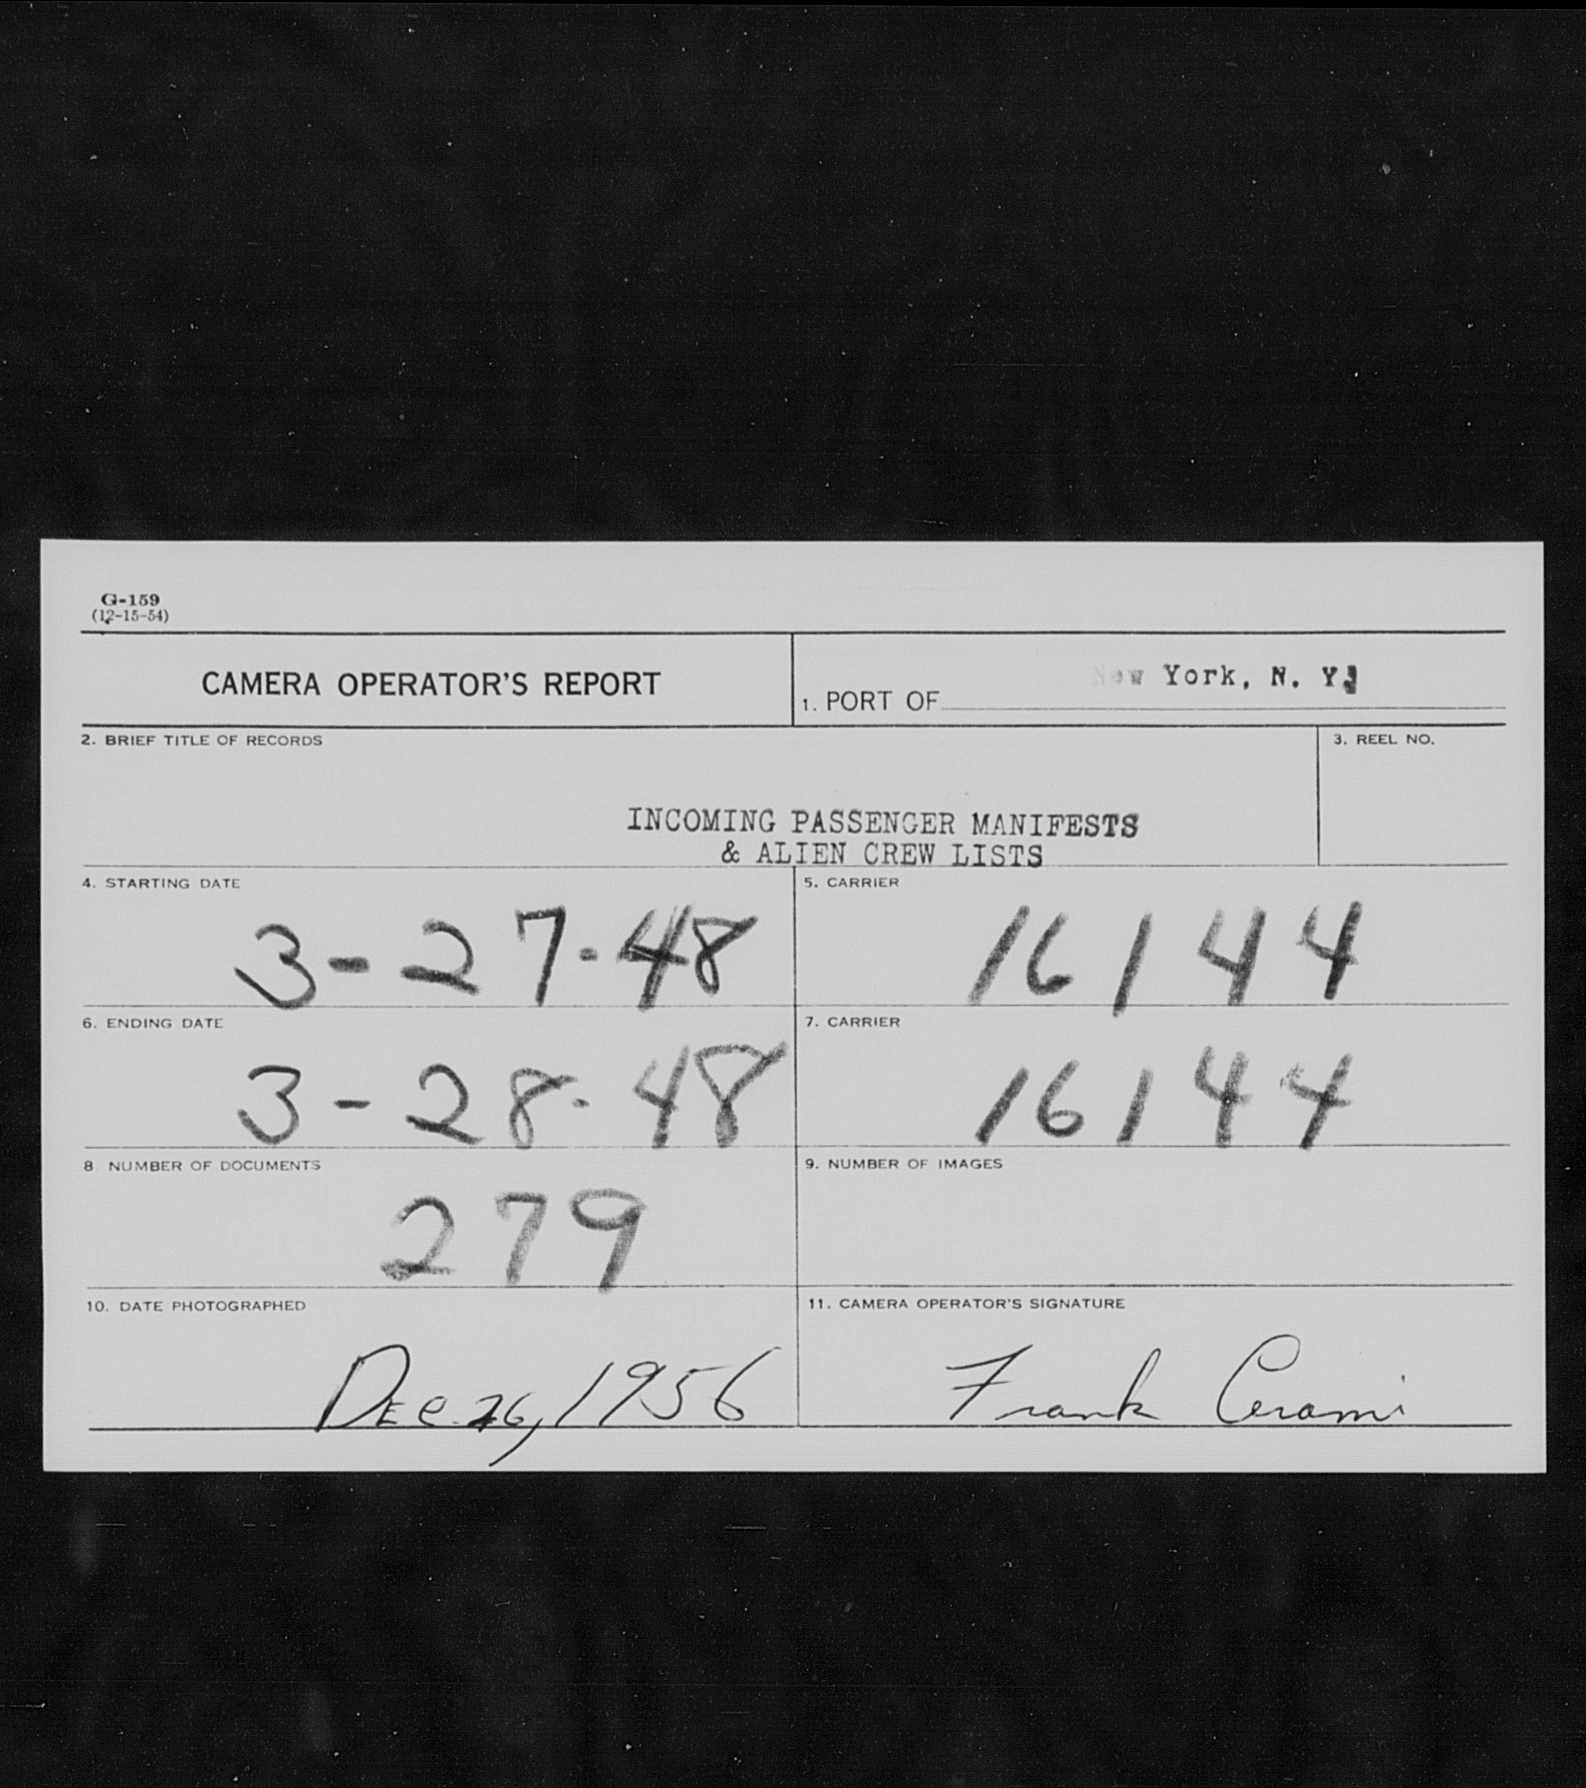 G-159
(12-15-54)
CAMERA OPERATOR'S REPORT
1. PORT OF New York, N. Y.
2. BRIEF TITLE OF RECORDS
3. REEL NO.
INCOMING PASSENGER MANIFESTS
& ALIEN CREW LISTS
4. STARTING DATE
3-27-48
5. CARRIER
16144
6. ENDING DATE
3-28-48
7. CARRIER
16144
8 NUMBER OF DOCUMENTS
279
9. NUMBER OF IMAGES
10. DATE PHOTOGRAPHED
DEC. 26, 1956
11. CAMERA OPERATOR'S SIGNATURE
Frank Cerami